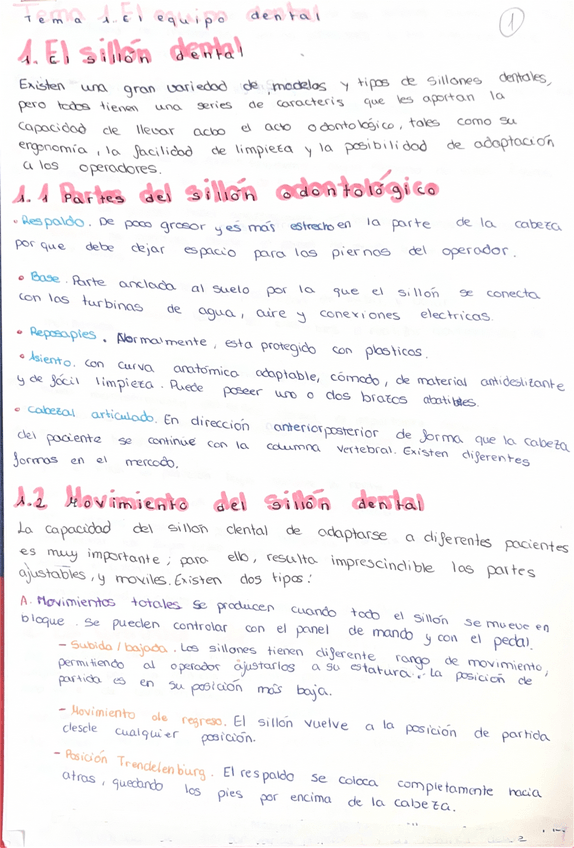 Tema 1. El equipo dental
1
1. El sillón dental
Existen una gran variedad de modelos y tipos de sillones dentales,
pero todos tienen una series de caracteris que les aportan la
capacidad de llevar acbo el acto odontológico, tales como su
ergonomía, la facilidad de limpieza y la posibilidad de adaptación
a los operadores.
1.1 Partes del sillón odontológico
• Respaldo. De poco grosor y es más estrecho en la parte de la cabeza
por que debe dejar espacio para las piernas del operador.
• Base. Parte anclada al suelo por la que el sillón se conecta
con las turbinas de agua, aire y conexiones electricas.
• Reposapies. Normalmente, esta protegido con plasticos.
• Asiento. con curva anatómica adaptable, cómodo, de material antideslizante
y de fácil limpieza. Puede poseer uno o dos brazos abatibles.
• Cabezal articulado. En dirección anteriorposterior de forma que la cabeza
del paciente se continue con la columna vertebral. Existen diferentes
formas en el mercado.
1.2 Movimiento del sillón dental
La capacidad del sillón dental de adaptarse a diferentes pacientes
es muy importante; para ello, resulta imprescindible las partes
ajustables, y moviles. Existen dos tipos:
A. Movimientos totales se producen cuando todo el sillón se mueve en
bloque. Se pueden controlar con el panel de mando y con el pedal.
- Subida/bajada. Los sillones tienen diferente rango de movimiento,
permitiendo al operador ajustarlos a su estatura. La posición de
partida es en su posición más baja.
- Movimiento de regreso. El sillón vuelve a la posición de partida
desde cualquier posición.
- Posición Trendelenburg. El respaldo se coloca completamente hacia
atras, quedando los pies por encima de la cabeza.